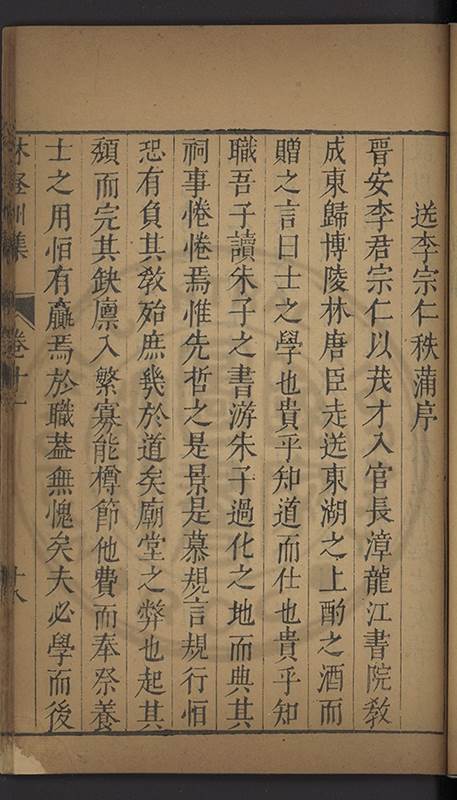 送李宗仁秩蒲序
晉安李君宗仁以茂才入官長漳龍江書院教
成東歸博陵林唐臣走送東湖之上酌之酒而
贈之言曰士之學也貴乎知道而仕也貴乎知
職吾子讀朱子之書游朱子過化之地而典其
祠事惓惓焉惟先哲之是景是慕規言規行恒
恐有負其教殆庶幾於道矣廟堂之弊也起其
頹而完其缺廪入繁寡能樽節他費而奉祭養
士之用恒有羸焉於職葢無愧矣夫必學而後
林登州集 卷十一 十八